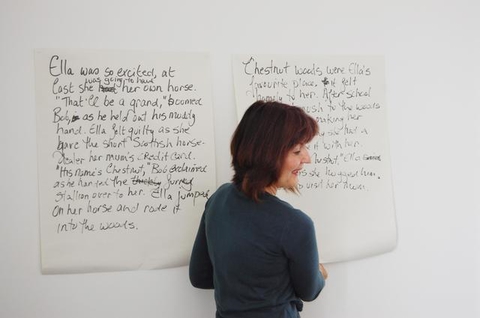 Ella was so excited, at
last she was going to have her own horse.
"That'll be a grand," boomed
Bob, as he held out his muddy
hand. Ella felt guilty as she
gave the short Scottish horse-
dealer her mum's credit card.
"His name's Chestnut," Bob exclaimed
as he handed the furry
stallion over to her. Ella jumped
on her horse and rode it
into the woods.
Chestnut woods were Ella's
favourite place. It felt
to her. After school
to the woods
making her
she had a
it with her
Ella
she hugged him.